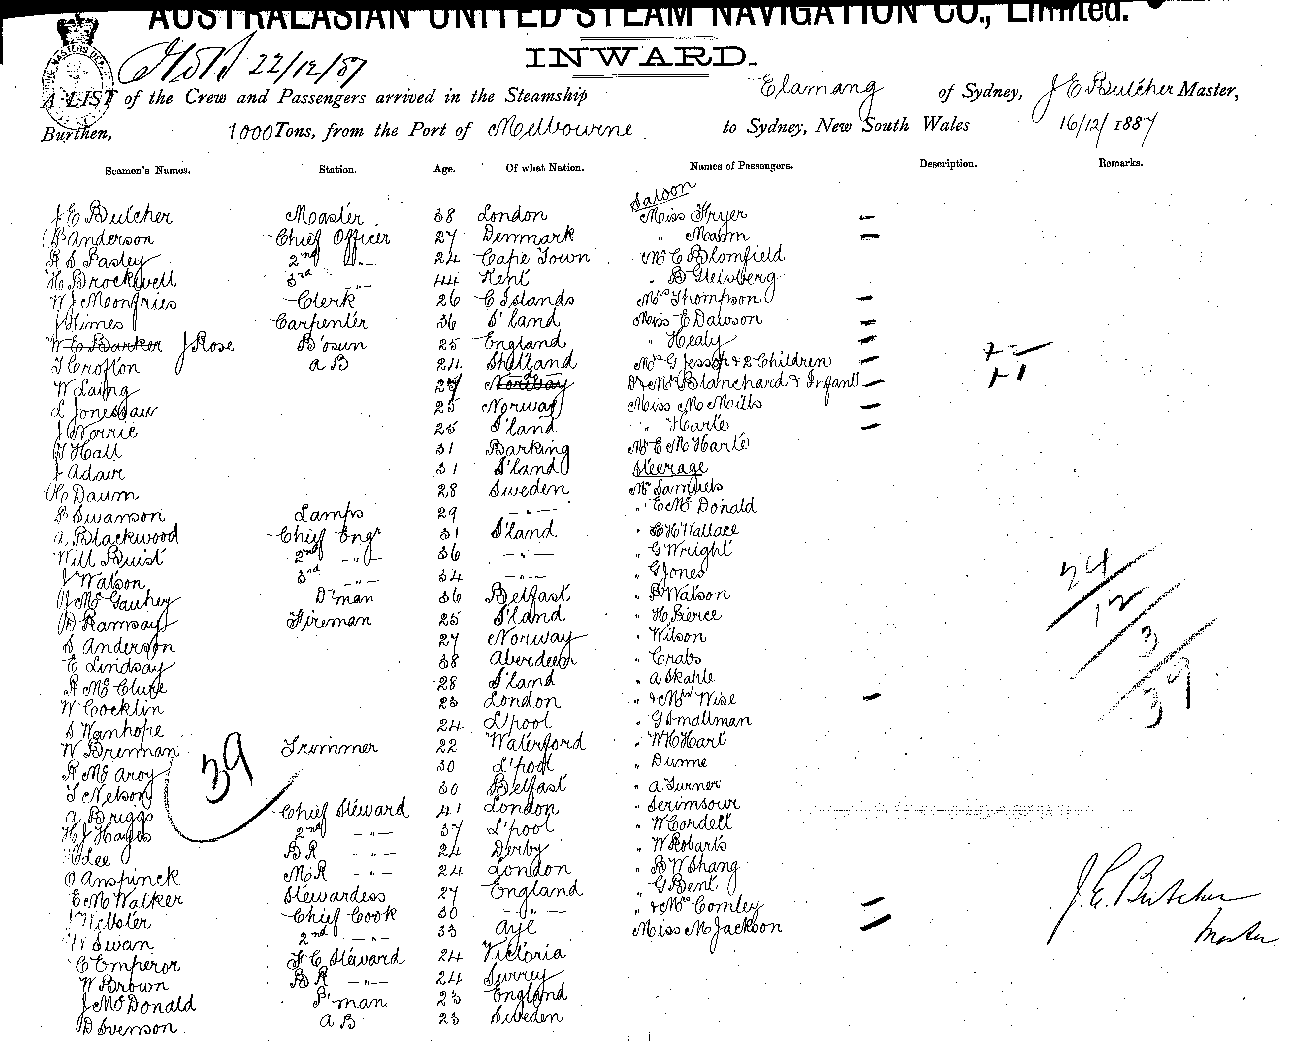 AUSTRALASIAN UNITED STEAM NAVIGATION CO., Limited.
22/12/87
INWARD.
A LIST of the Crew and Passengers arrived in the Steamship Elamang of Sydney, J E Butcher Master,
Burthen, 1000 Tons, from the Port of Melbourne to Sydney, New South Wales 16/12/1887
Seamen's Names. Station. Age. Of what Nation. Names of Passengers. Description. Remarks.
Saloon
J E Butcher Master 38 London Miss Fryer —
P Anderson Chief Officer 27 Denmark " Mason —
R S Pasley 2nd " 24 Cape Town Mr C Blomfield
H Brockwell 3rd " 44 Kent " B Gleisberg
W J Monfries Clerk 26 C Islands Mrs Thompson —
J Himes Carpenter 36 S'land Miss E Dawson —
W E Barker J Rose B'osun 25 England " Healy —
T Crofton A B 24 Shetland Mrs G Jessop & 2 Children —
W Laing 27 Norway Dr & Mrs Blanchard & Infant —
L Jonessaw 25 Norway Miss M Mills —
J Norrie 25 S'land " Harte —
G Hall 31 Barking Mr E M Harte
J Adair 31 S'land Steerage
H Daum 28 Sweden Mr Samuels
P Swanson Lamps 29 " " E McDonald
A Blackwood Chief Engr 31 S'land " H Wallace
Will Buist 2nd " 36 " " G Wright
J Watson 3rd " 34 " " G Jones
J McGauhey D'man 36 Belfast " P Watson
D Ramsay Fireman 25 S'land " H Pierce
S Anderson 27 Norway " Wilson
E Lindsay 38 Aberdeen " Crabs
R McClure 28 S'land " A Skahle
W Cocklin 23 London " & Mrs Wise —
S Wanhope 24 L'pool " G Smallman
W Brennan Trimmer 22 Waterford " W H Hart
R McAroy 30 L'pool " Dunne
T Nelson 30 Belfast " A Turner
A Briggs Chief Steward 41 London " Scrimsour
H J Hayes 2nd " 37 L'pool " W Cordell
Lee B R " 24 Derby " W Robarts
O Anspinck M R " 24 London " B W Shang
E M Walker Stewardess 27 England " G Bent
Webster Chief Cook 30 " " & Mrs Comley —
W Swan 2nd " 33 Ayr Miss M Jackson —
C Emperor F C Steward 24 Victoria
W Brown B R " 24 Surrey
J McDonald P'man 23 England
D Svenson A B 23 Sweden
39
24
12
3
39
J. E. Butcher
Master